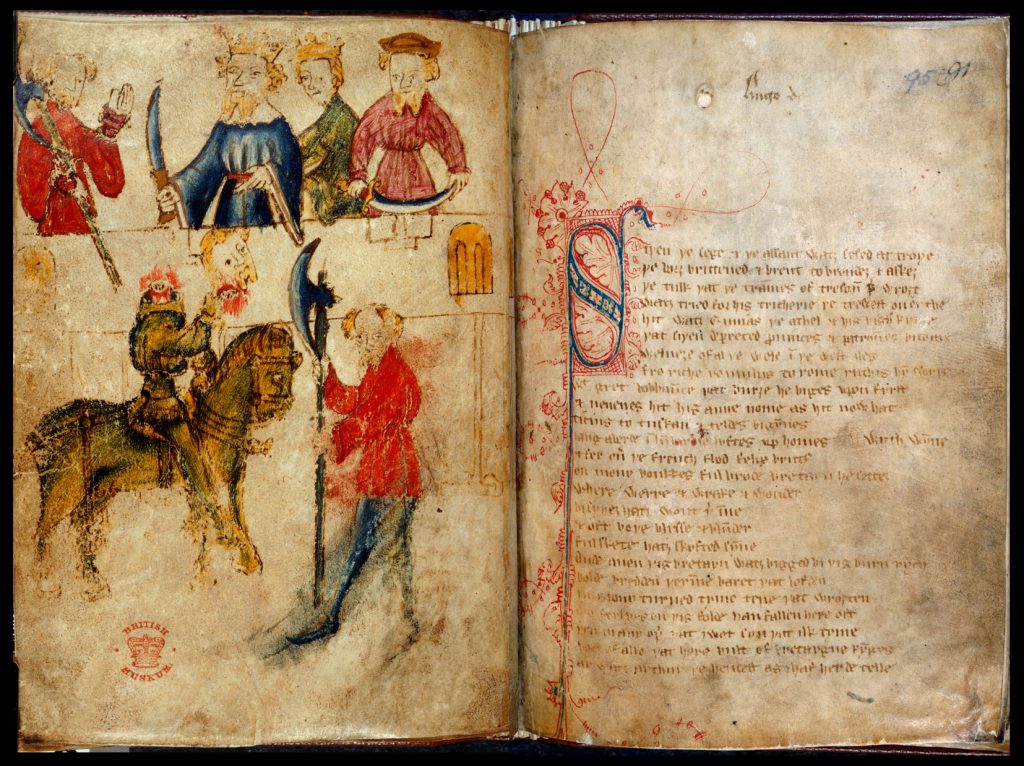 Hugo de
95 91
Siþen þe sege & þe assaut watz sesed at troye
þe borȝ brittened & brent to brondez & askez
þe tulk þat þe trammes of tresoun þ̛ wroȝt
watz tried for his tricherie þe trewest on erthe
hit watz Ennias þe athel & his highe kynde
þat siþen depreced prouinces & patrounes bicome
welneȝe of al þe wele in þe west iles
fro riche romulus to rome ricchis hym swyþe
gret bobbaūce þat burȝe he biges vpon fyrst
& neuenes hit his aune nome as hit now hat
ticius to tuskan & teldes bigynnes
langaberde in lumbardie lyftes vp homes wyth wynne
& fer oư þe french flod felix brutus
on mony bonkkes ful brode bretayn he settez
where werre & wrake & wonder
bi syþez hatz wont þ̛inne
& oft boþe blysse & blunder
ful skete hatz skyfted synne
Ande quen þis bretayn watz bigged bi þis burn rych
bolde bredden þ̛inne baret þat lofden
in mony turned tyme tene þat wroȝten
mo ferlyes on þis folde han fallen here oft
þen in any oþ̛ þat I wot syn þat ilk tyme
bot of alle þat here bult of bretaygne kynges
ay watz arthur þe hendest as I haf herde telle
BRITISH
MUSEUM